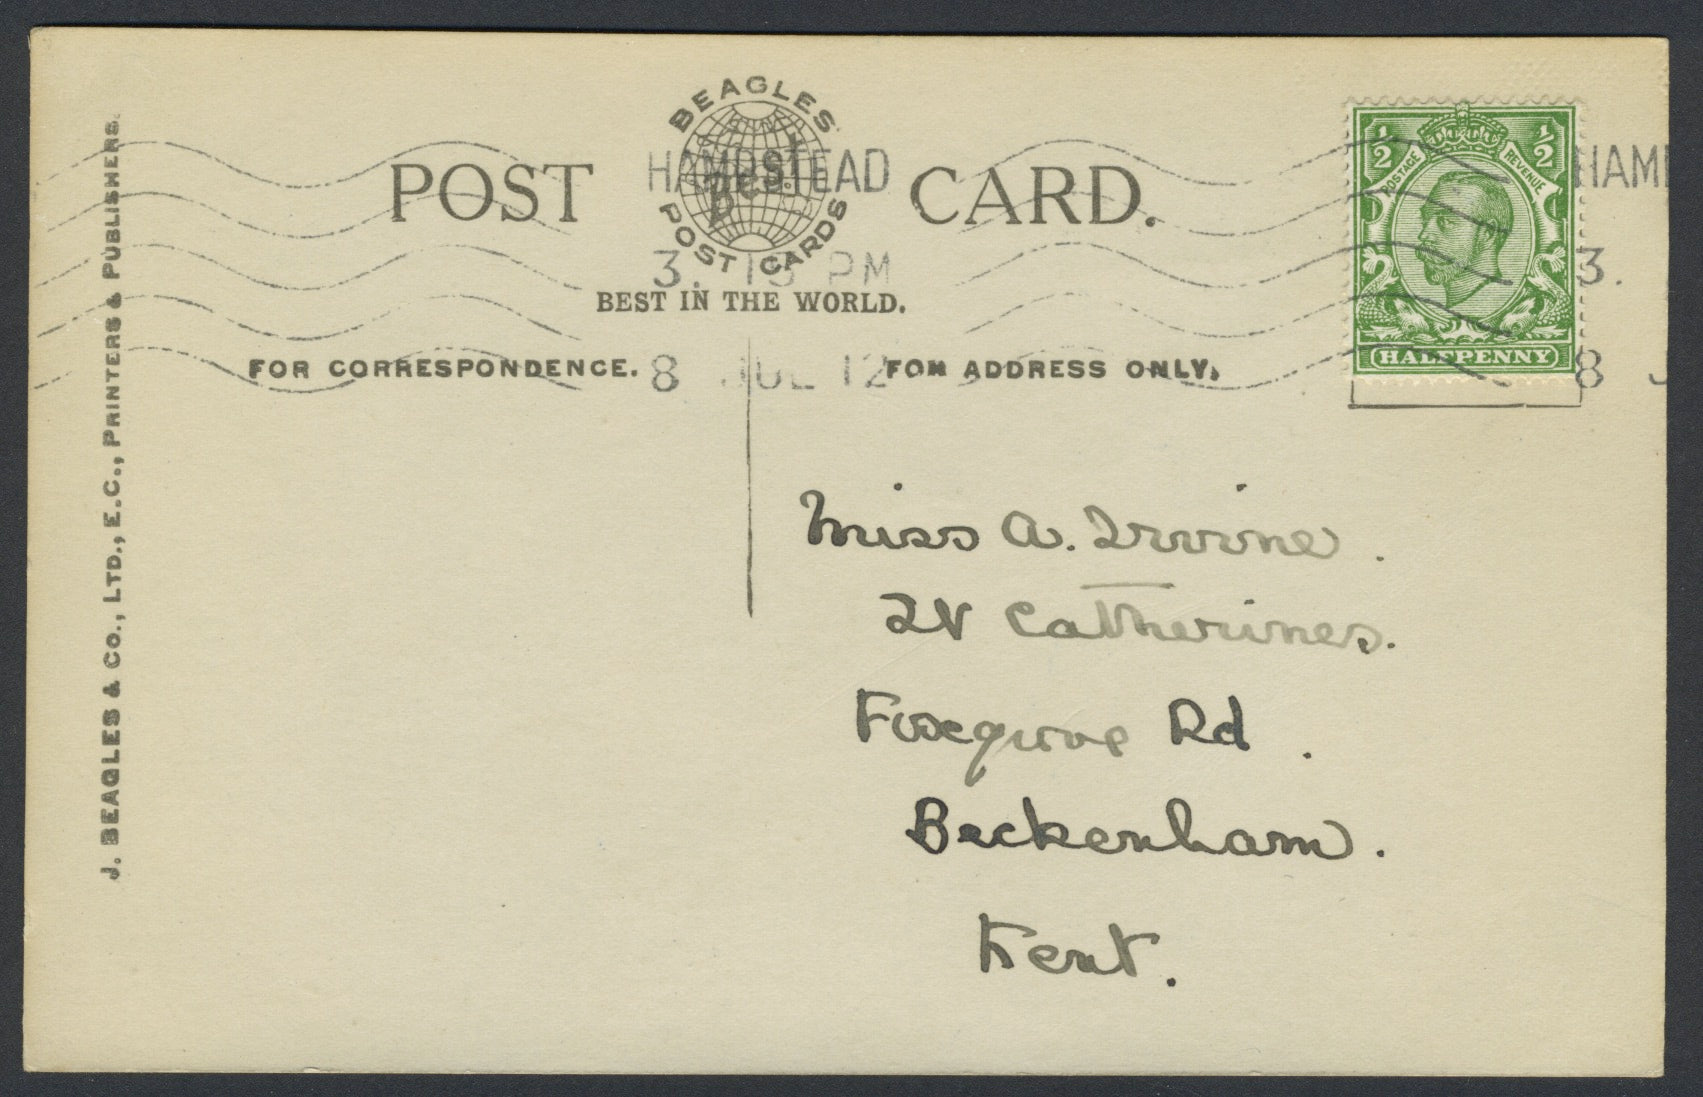 BEAGLES
POST CARD.
Best
POST CARDS
BEST IN THE WORLD.
HAMPSTEAD
3. 15 PM
8 JUL 12
HAM
3.
8 J
FOR CORRESPONDENCE.
FOR ADDRESS ONLY.
½ ½
POSTAGE REVENUE
HALFPENNY
Miss A. Irvine.
St Catherines.
Foxgrove Rd.
Beckenham.
Kent.
J. BEAGLES & Co., LTD., E.C., PRINTERS & PUBLISHERS.